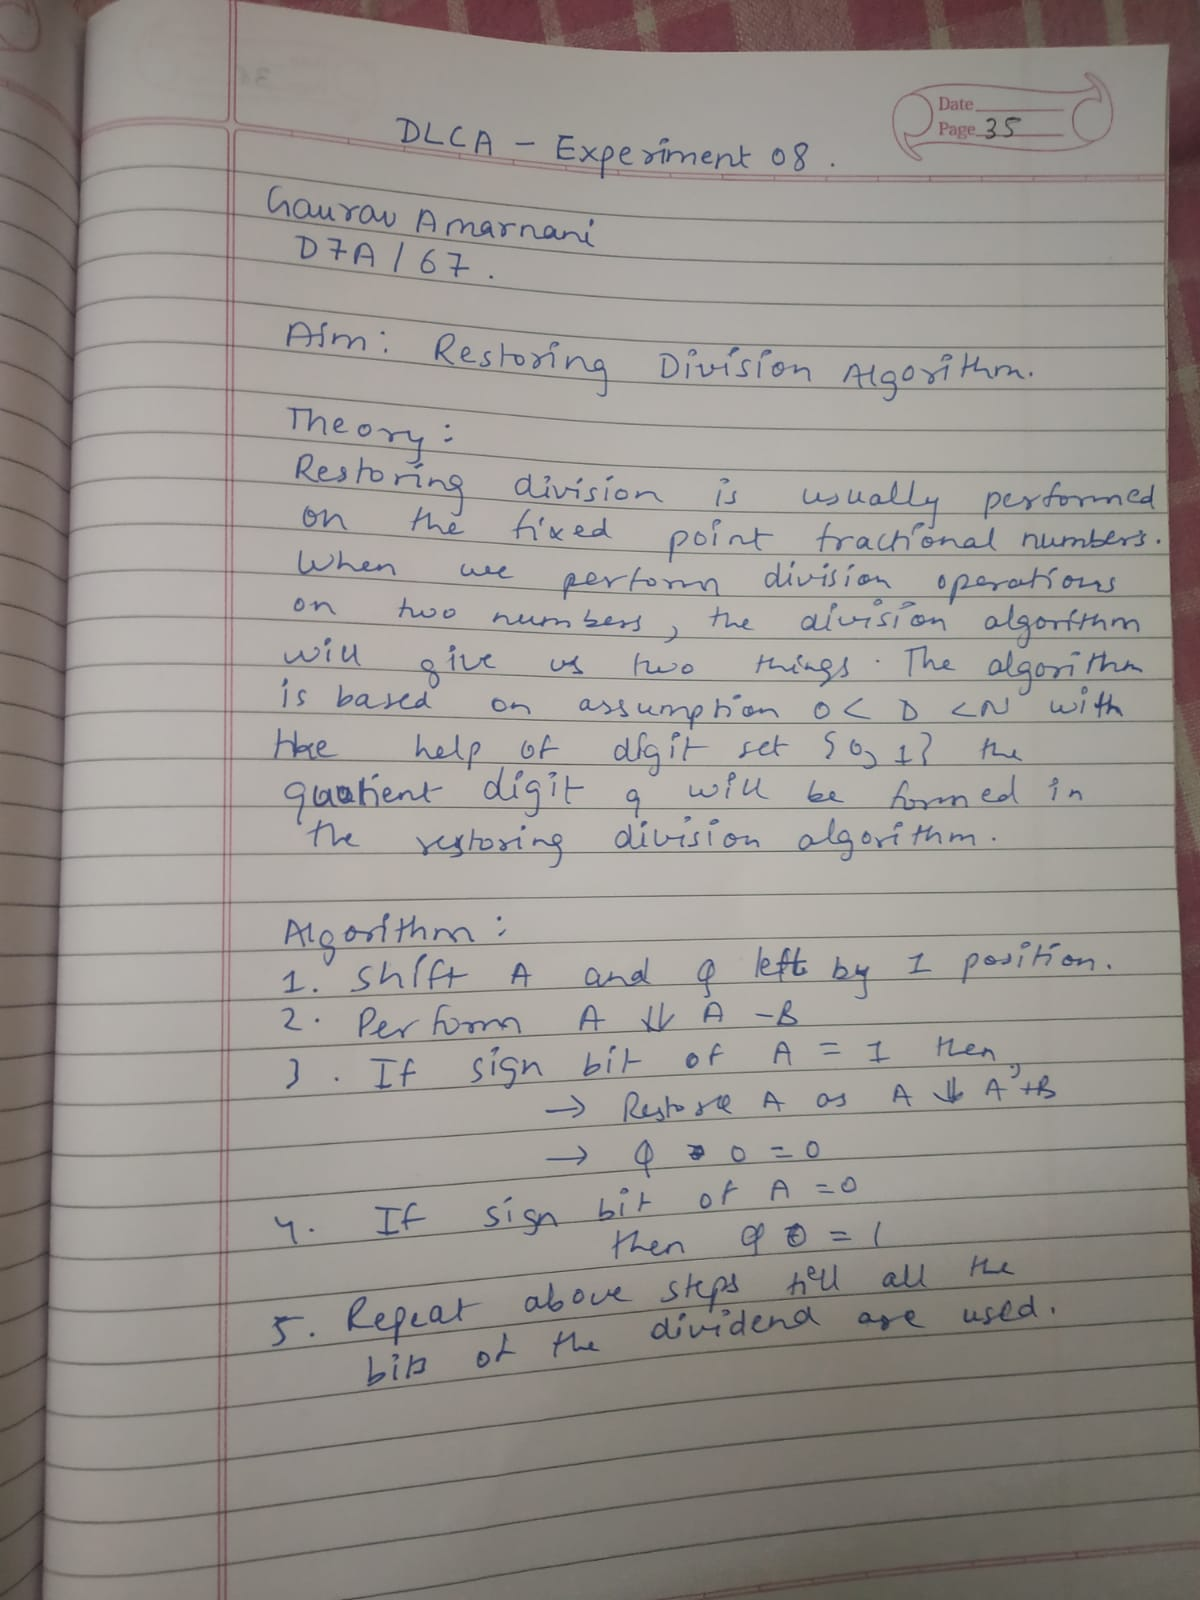 Date
Page 35
DLCA - Experiment 08.
Gaurav Amarnani
D7A / 67.
Aim: Restoring Division Algorithm.
Theory:
Restoring division is usually performed
on the fixed point fractional numbers.
When we perform division operations
on two numbers, the division algorithm
will give us two things. The algorithm
is based on assumption 0 < D < N with
the help of digit set {0, 1} the
quotient digit q will be formed in
the restoring division algorithm.
Algorithm:
1. Shift A and Q left by 1 position.
2. Perform A ⇓ A - B
3. If sign bit of A = 1 then,
→ Restore A as A ⇓ A + B
→ Q 0 = 0
4. If sign bit of A = 0
then Q 0 = 1
5. Repeat above steps till all the
bits of the dividend are used.